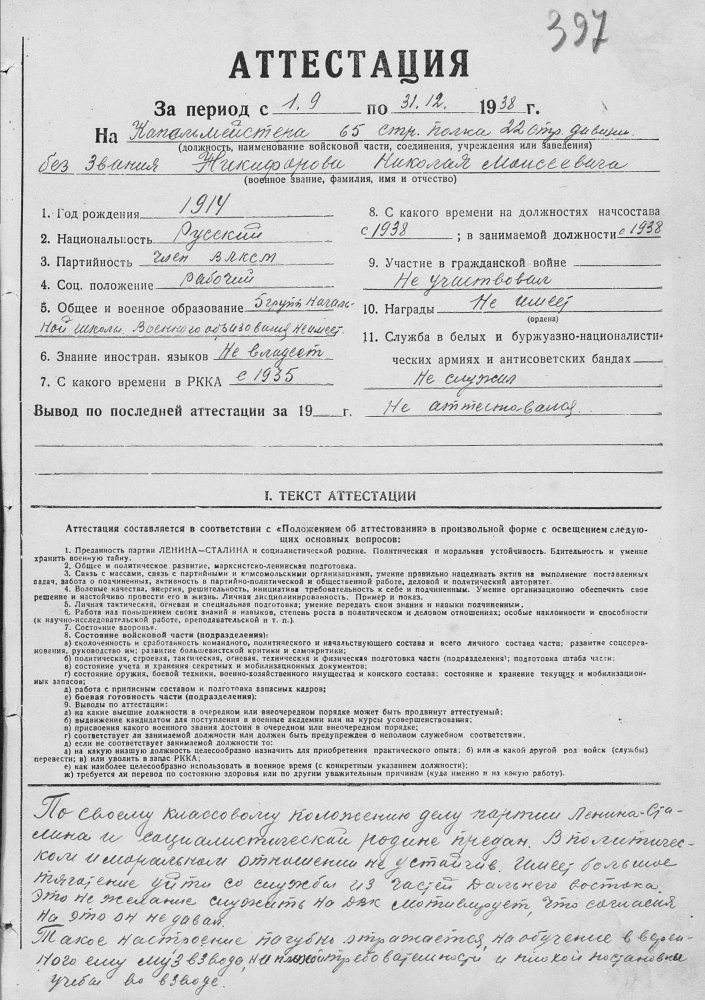 397
АТТЕСТАЦИЯ
За период с 1.9 по 31.12. 1938 г.
На Капельмейстера 65 стр. полка 22 стр. дивизии
(должность, наименование войсковой части, соединения, учреждения или заведения)
без звания Никифорова Николая Моисеевича
(военное звание, фамилия, имя и отчество)
1. Год рождения 1914
2. Национальность Русский
3. Партийность член ВЛКСМ
4. Соц. положение рабочий
5. Общее и военное образование 5 групп началь-
ной школы. Военного образования не имеет
6. Знание иностран. языков Не владеет
7. С какого времени в РККА с 1935
8. С какого времени на должностях начсостава
с 1938 ; в занимаемой должности с 1938
9. Участие в гражданской войне
Не участвовал
10. Награды Не имеет
(ордена)
11. Служба в белых и буржуазно-националисти-
ческих армиях и антисоветских бандах
Не служил
Вывод по последней аттестации за 19 г. Не аттестовался.
I. ТЕКСТ АТТЕСТАЦИИ
Аттестация составляется в соответствии с «Положением об аттестовании» в произвольной форме с освещением следую-
щих основных вопросов:
1. Преданность партии ЛЕНИНА—СТАЛИНА и социалистической родине. Политическая и моральная устойчивость. Бдительность и умение
хранить военную тайну.
2. Общее и политическое развитие, марксистско-ленинская подготовка.
3. Связь с массами, связь с партийными и комсомольскими организациями, умение правильно нацеливать актив на выполнение поставленных
задач, забота о подчиненных, активность в партийно-политической и общественной работе, деловой и политический авторитет.
4. Волевые качества, энергия, решительность, инициатива требовательность к себе и подчиненным. Умение организационно обеспечить свое
решение и настойчиво провести его в жизнь. Личная дисциплинированность. Пример и показ.
5. Личная тактическая, огневая и специальная подготовка; умение передать свои знания и навыки подчиненным.
6. Работа над повышением своих знаний и навыков, степень роста в политическом и деловом отношениях; особые наклонности и способности
(к научно-исследовательской работе, преподавательской и т. п.).
7. Состояние здоровья.
8. Состояние войсковой части (подразделения):
а) сколоченность и сработанность командного, политического и начальствующего состава и всего личного состава части; развитие соцсорев-
нования, руководство им; развитие большевистской критики и самокритики;
б) политическая, строевая, тактическая, огневая, техническая и физическая подготовка части (подразделения); подготовка штаба части:
в) состояние учета и хранения секретных и мобилизационных документов;
г) состояние оружия, боевой техники, военно-хозяйственного имущества и конского состава: состояние и хранение текущих и мобилизацион-
ных запасов;
д) работа с приписным составом и подготовка запасных кадров;
е) боевая готовность части (подразделения):
9. Выводы по аттестации:
а) на какие высшие должности в очередном или внеочередном порядке может быть продвинут аттестуемый;
б) выдвижение кандидатом для поступления в военные академии или на курсы усовершенствования;
в) присвоения какого военного звания достоин в очередном или внеочередном порядке;
г) соответствует ли занимаемой должности или должен быть предупрежден о неполном служебном соответствии.
д) если не соответствует занимаемой должности то:
а) на какую низшую должность целесообразно назначить для приобретения практического опыта: б) или в какой другой род войск (службы)
перевести; в) или уволить в запас РККА;
е) как наиболее целесообразно использовать в военное время (с конкретным указанием должности);
ж) требуется ли перевод по состоянию здоровья или по другим уважительным причинам (куда именно и на какую работу).
По своему классовому положению делу партии Ленина-Ста-
лина и социалистической родине предан. В политичес-
ком и моральном отношении не устойчив. Имеет большое
тяготение уйти со службы из частей Дальнего востока.
Это не желание служить на ДВК мотивирует, что согласия
на это он не давал.
Такое настроение пагубно отражается, на обучение вверен-
ного ему муз взвода, требовательности и плохой постановки
учебы во взводе.